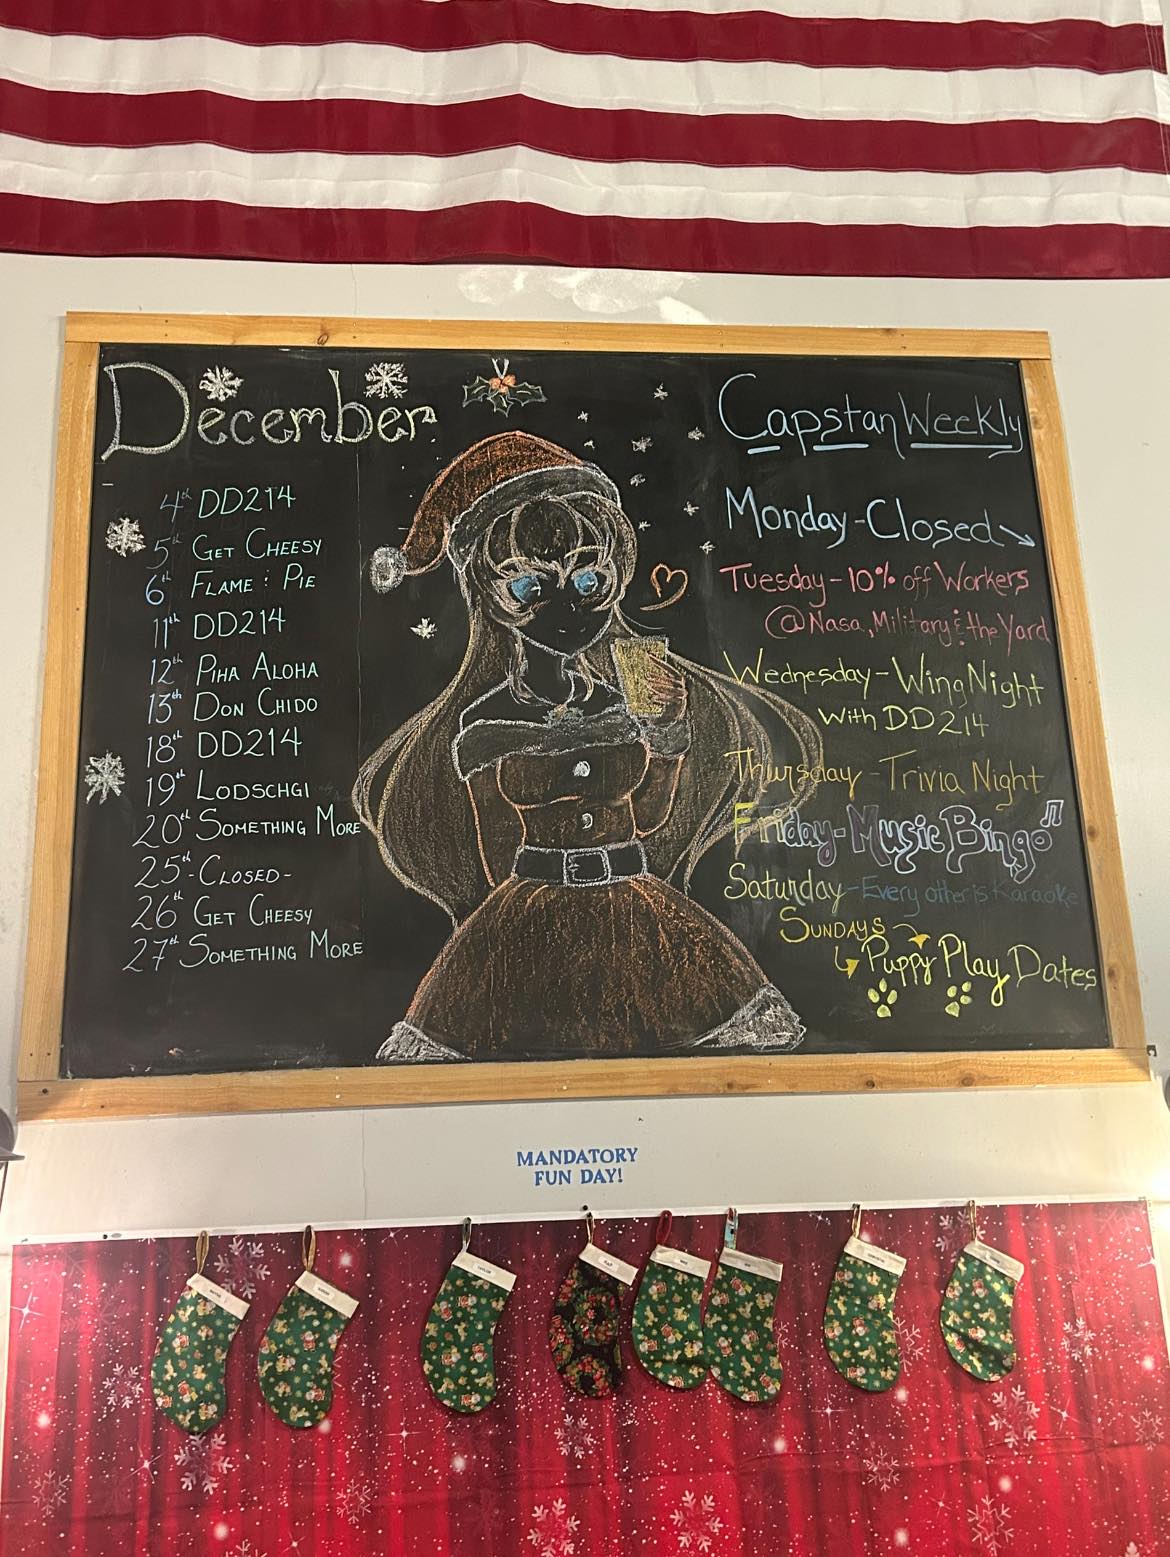 December
4th DD214
5th GET CHEESY
6th FLAME & PIE
11th DD214
12th PIHA ALOHA
13th DON CHIDO
18th DD214
19th LODSCHGI
20th SOMETHING MORE
25th -CLOSED-
26th GET CHEESY
27th SOMETHING MORE
Capstan Weekly
Monday - Closed
Tuesday - 10% off Workers
@ Nasa, Military & the Yard
Wednesday - Wing Night
with DD214
Thursday - Trivia Night
Friday - Music Bingo
Saturday - Every other is Karaoke
SUNDAYS
Puppy Play Dates
MANDATORY
FUN DAY!